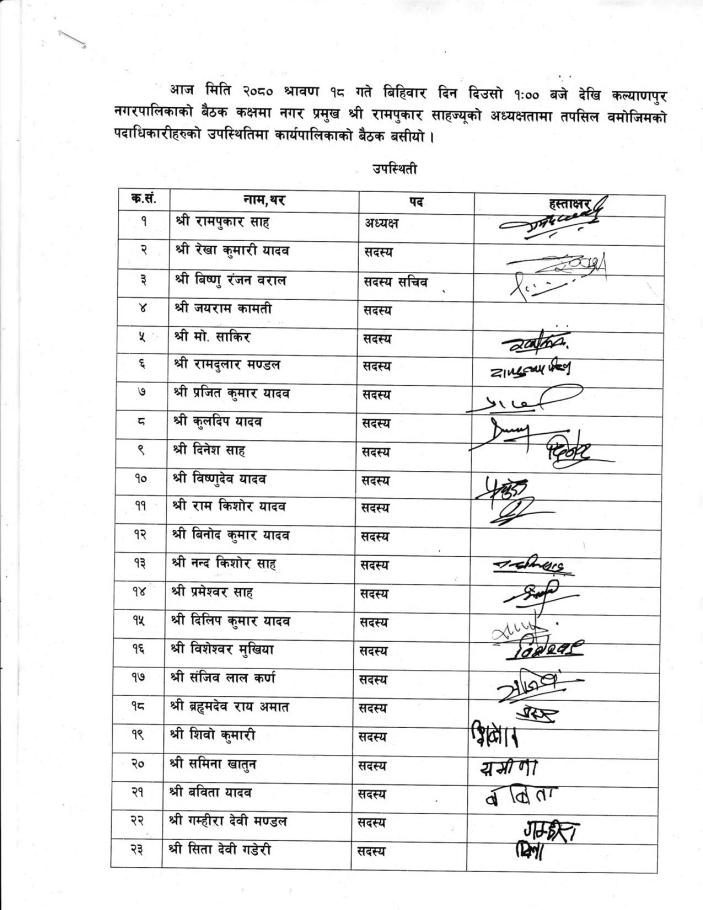 आज मिति २०८० श्रावण १८ गते बिहिवार दिन दिउसो १:०० बजे देखि कल्याणपुर
नगरपालिकाको बैठक कक्षमा नगर प्रमुख श्री रामपुकार साहज्यूको अध्यक्षतामा तपसिल वमोजिमको
पदाधिकारीहरुको उपस्थितिमा कार्यपालिकाको बैठक बसीयो ।
उपस्थिती
क.सं. नाम,थर पद हस्ताक्षर
१ श्री रामपुकार साह अध्यक्ष
२ श्री रेखा कुमारी यादव सदस्य
३ श्री बिष्णु रंजन वराल सदस्य सचिव
४ श्री जयराम कामती सदस्य
५ श्री मो. साकिर सदस्य
६ श्री रामदुलार मण्डल सदस्य
७ श्री प्रजित कुमार यादव सदस्य
८ श्री कुलदिप यादव सदस्य
९ श्री दिनेश साह सदस्य
१० श्री विष्णुदेव यादव सदस्य
११ श्री राम किशोर यादव सदस्य
१२ श्री बिनोद कुमार यादव सदस्य
१३ श्री नन्द किशोर साह सदस्य
१४ श्री प्रमेश्वर साह सदस्य
१५ श्री दिलिप कुमार यादव सदस्य
१६ श्री विशेश्वर मुखिया सदस्य
१७ श्री संजिव लाल कर्ण सदस्य
१८ श्री ब्रह्मदेव राय अमात सदस्य
१९ श्री शिवो कुमारी सदस्य
२० श्री समिना खातुन सदस्य
२१ श्री बविता यादव सदस्य वविता
२२ श्री गम्हीरा देवी मण्डल सदस्य
२३ श्री सिता देवी गडेरी सदस्य